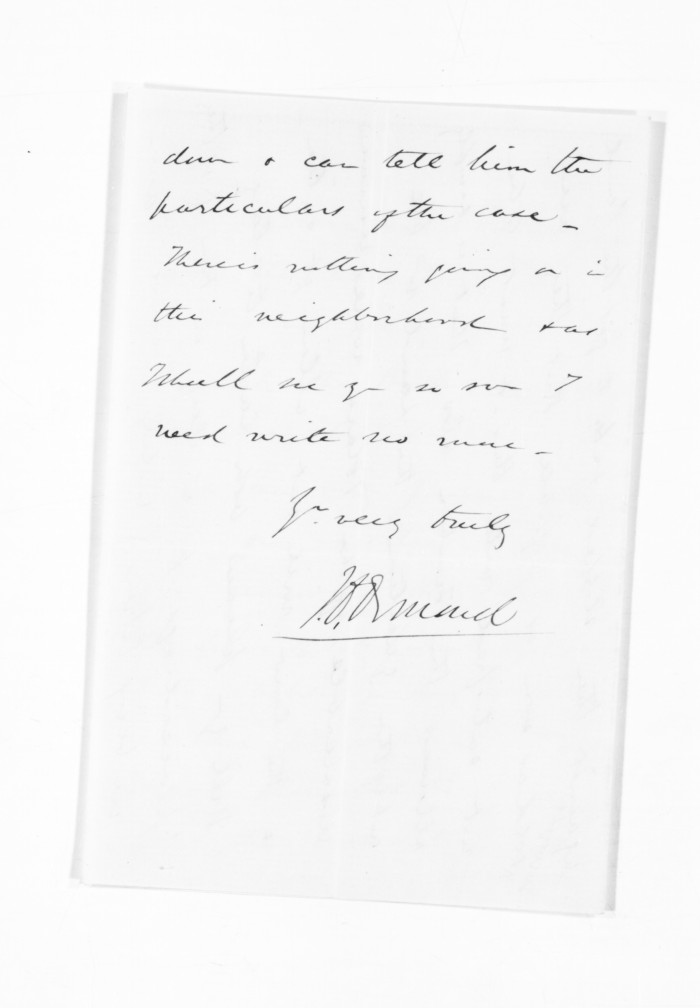 down & can tell him the
particulars of the case _
There is nothing going on in
this neighborhood & as
I shall see you so soon I
need write no more _
Yrs. very truly
J. D. Ormond